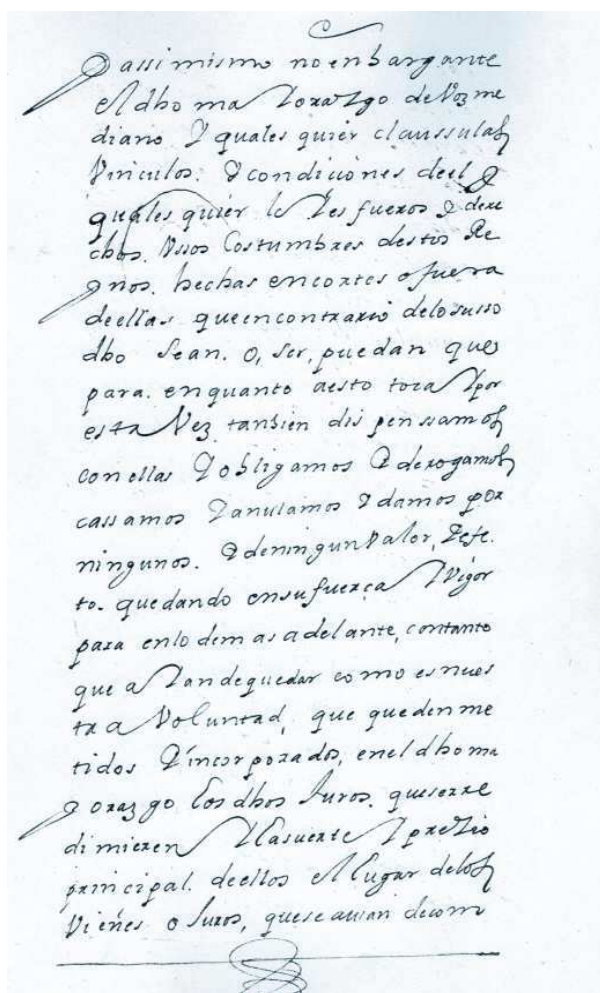 y assi mismo no enbargante
el dho mayorazgo de Vozme
diano y quales quier claussulas
Vinculos. y condiciones deel y
quales quier leyes fueros y dere
chos. Vsos Costumbres destos Re
ynos. hechas encortes o fuera
deellas que encontrario delo susso
dho Sean. o, ser, puedan que
para. en quanto aesto toca y por
esta Vez tanbien dis penssamos
con ellas y obligamos y derogamos
cassamos y anulamos y damos por
ningunos. y deningun Valor, y efe.
to. quedando ensu fuerça y Vigor
para enlo demas adelante, contanto
que ayan de quedar como es nues
tra Voluntad, que queden me
tidos y incorporados, enel dho ma
yorazgo los dhos Juros. que se rre
dimieren y la suerte y preçio
principal. deellos el lugar delos
Vienes o Juros, que se auian de com